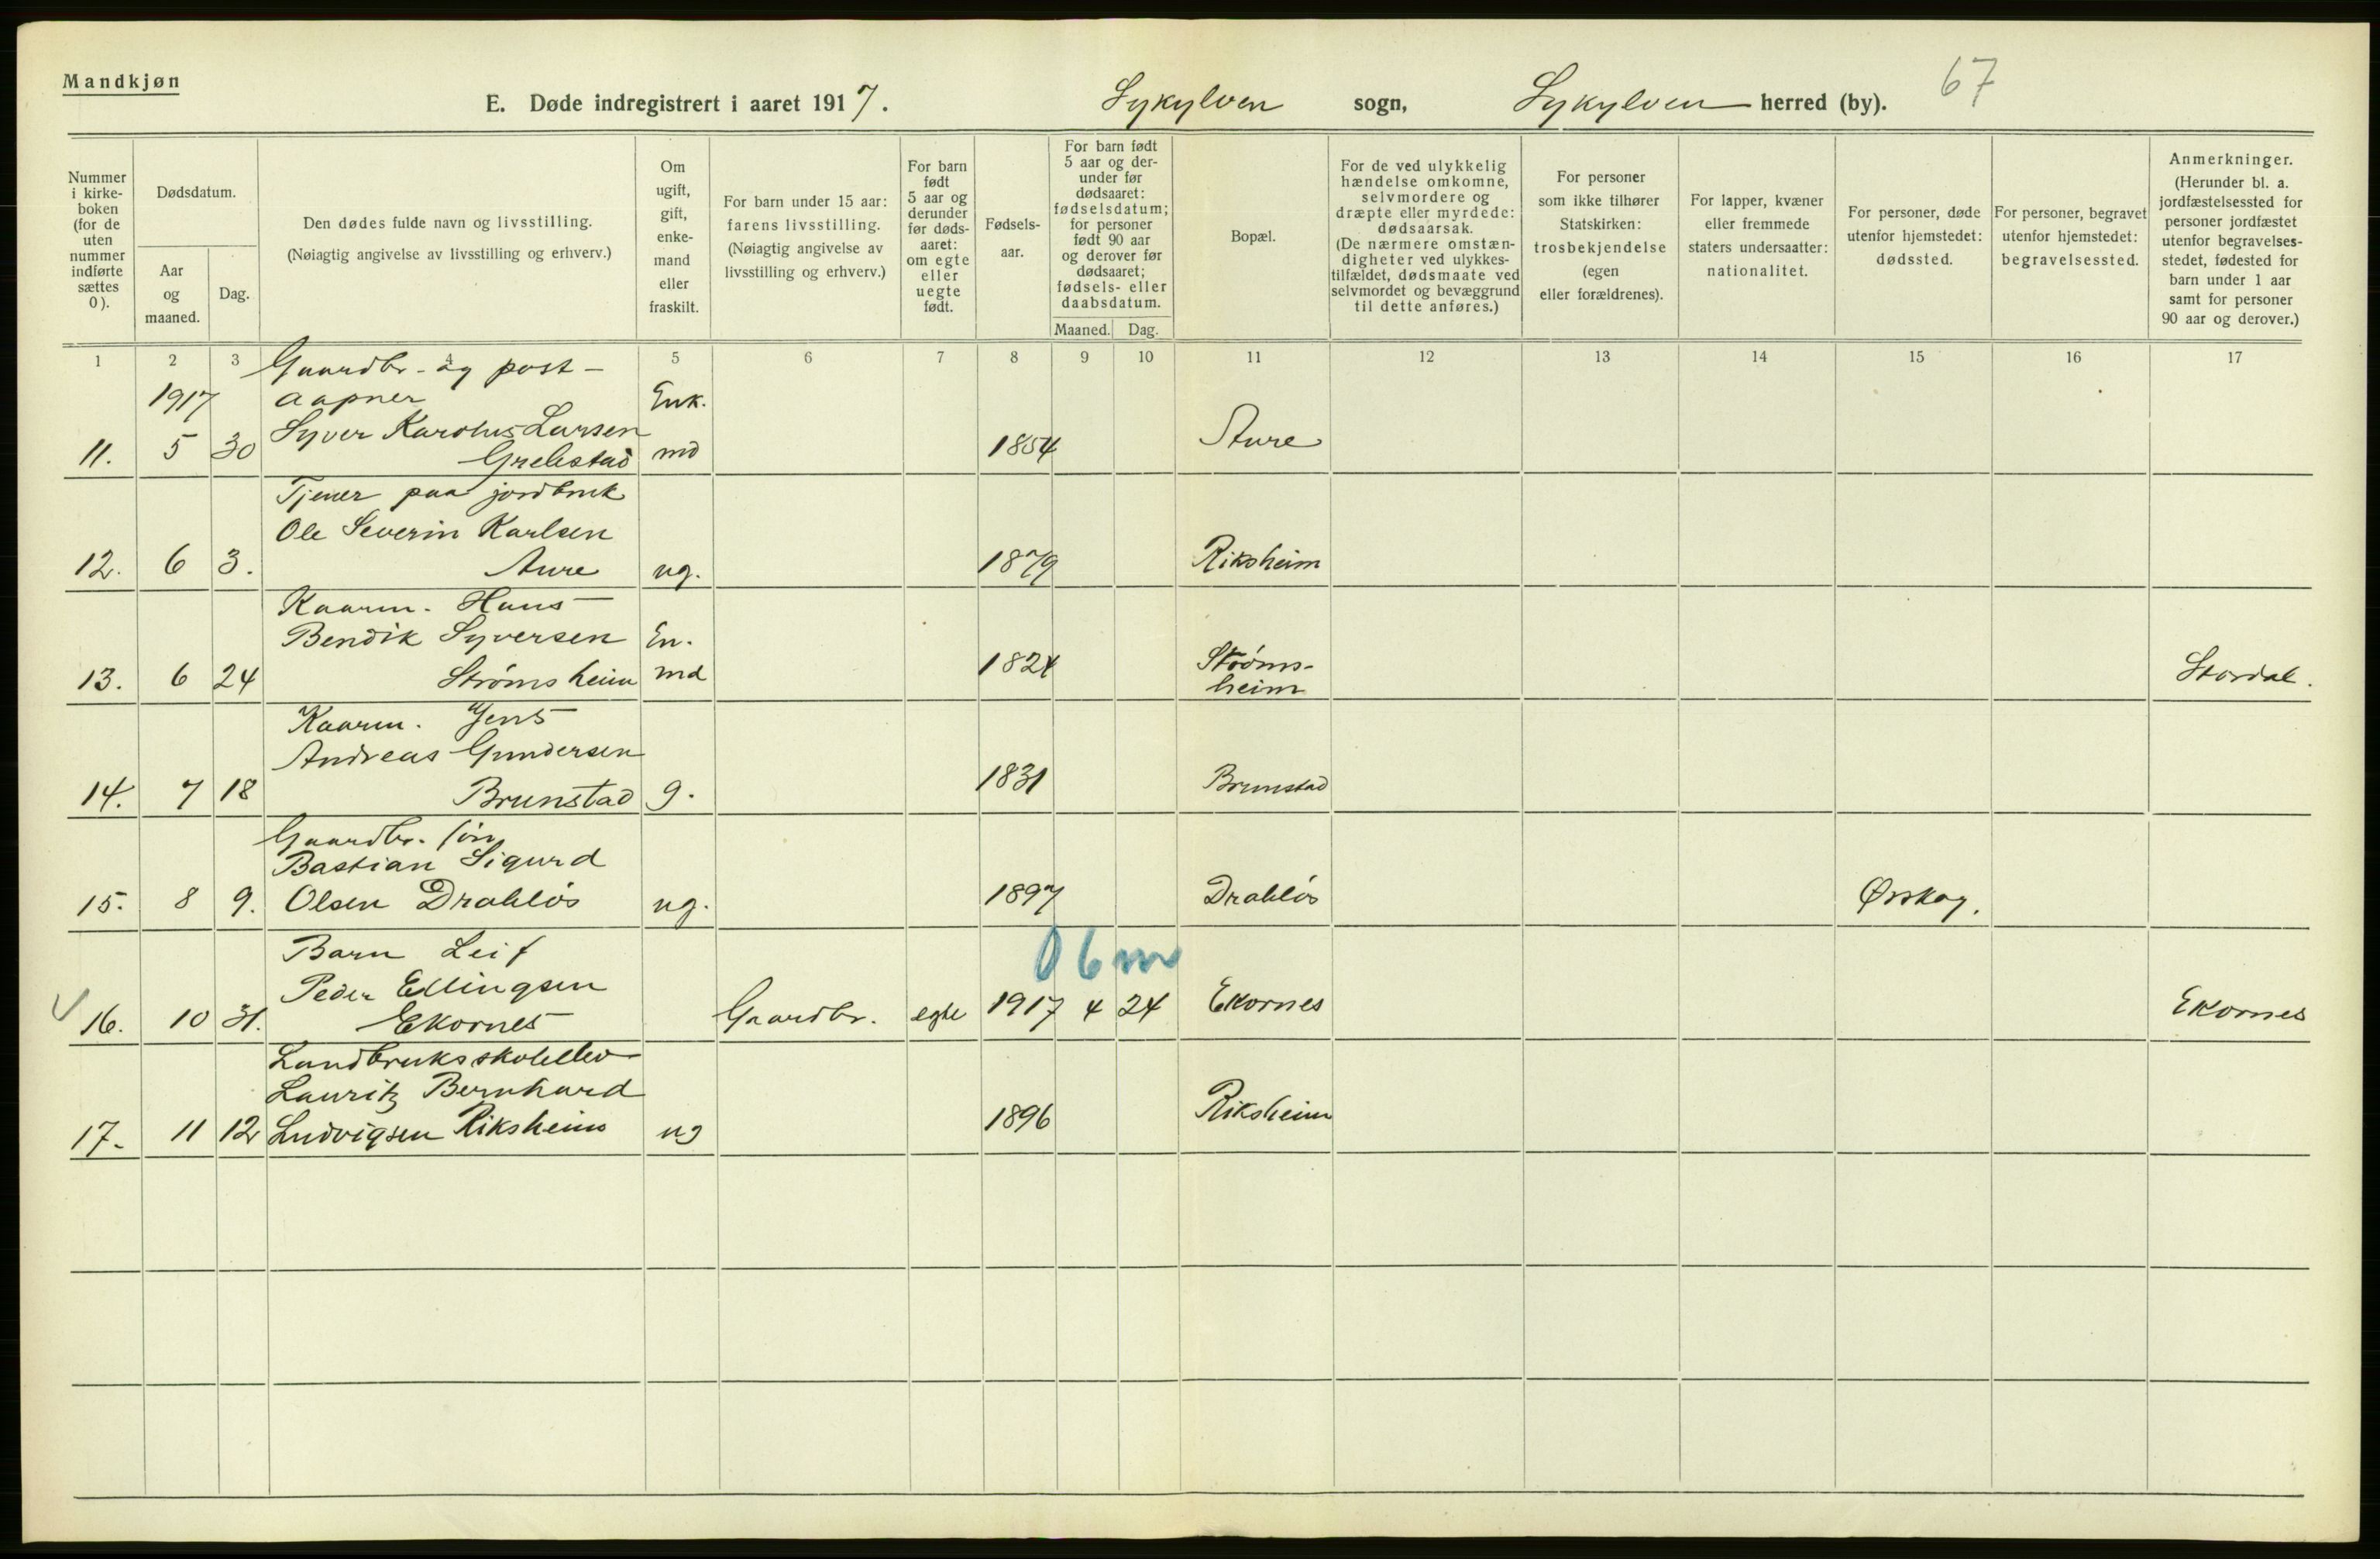 Mandkjøn
E. Døde indregistrert i aaret 1917. Sykylven sogn, Sykylven herred (by). 67
Nummer i kirke- boken (for de uten nummer indførte sættes 0).
Dødsdatum.
Aar og maaned.
Dag.
Den dødes fulde navn og livsstilling.
(Nøiagtig angivelse av livsstilling og erhverv.)
Om ugift, gift, enke- mand eller fraskilt.
For barn under 15 aar: farens livsstilling. (Nøiagtig angivelse av livsstilling og erhverv.)
For barn født 5 aar og derunder før døds- aaret: om egte eller uegte født.
Fødsels- aar.
For barn født 5 aar og der- under før dødsaaret: fødselsdatum; for personer født 90 aar og derover før dødsaaret; fødsels- eller daabsdatum.
Maaned. Dag.
Bopæl.
For de ved ulykkelig hændelse omkomne, selvmordere og dræpte eller myrdede: dødsaarsak. (De nærmere omstæn- digheter ved ulykkes- tilfældet, dødsmaate ved selvmordet og bevæggrund til dette anføres.)
For personer som ikke tilhører Statskirken: trosbekjendelse (egen eller forældrenes).
For lapper, kvæner eller fremmede staters undersaatter: nationalitet.
For personer, døde utenfor hjemstedet: dødssted.
For personer, begravet utenfor hjemstedet: begravelsessted.
Anmerkninger. (Herunder bl. a. jordfæstelsessted for personer jordfæstet utenfor begravelses- stedet, fødested for barn under 1 aar samt for personer 90 aar og derover.)
1 2 3 4 5 6 7 8 9 10 11 12 13 14 15 16 17
Gaardbr. og post-
1917 aapner Enk.
Syver Karolus Larsen
11. 5 30 Grebstad md 1854 Aure
Tjener paa jordbruk
Ole Severin Karlsen
12. 6 3. Aure ug. 1879 Riksheim
Kaarm. Hans
Bendik Syversen En.
13. 6 24 Strømsheim md 1824 Strøms- Stordal.
heim
Kaarm. Jens
Andreas Gundersen
14. 7 18 Brunstad g. 1831 Brunstad
Gaardbr. søn
Bastian Sigurd
15. 8 9. Olsen Drabløs ug. 1897 Drabløs Ørskog.
Barn Leif 0 6 m
Peder Ellingsen
16. 10 31. Ekornes Gaardbr. egte 1917 4 24 Ekornes Ekornes
Landbruksskoleelev
Lauritz Bernhard
17. 11 12 Ludvigsen Riksheim ug 1896 Riksheim